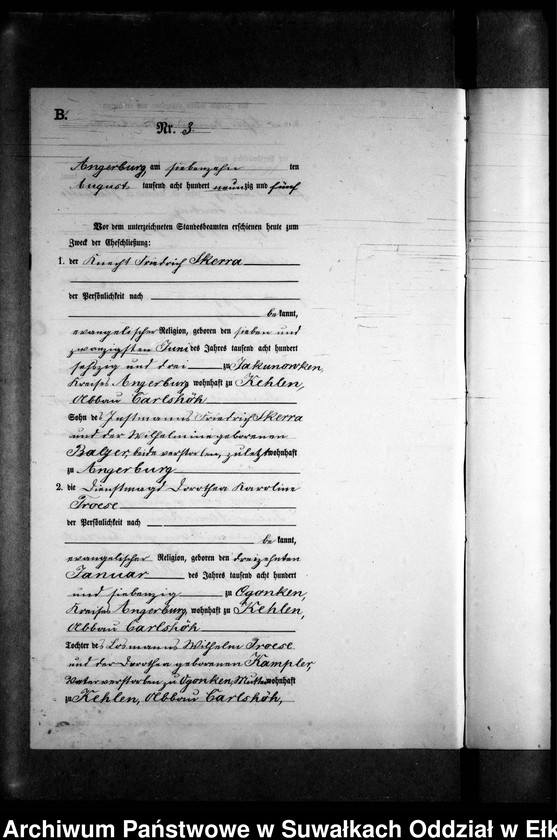 B.
Nr. 3
Angerburg, am siebenzehn ten
August tausend acht hundert neunzig und fünf
Vor dem unterzeichneten Standesbeamten erschienen heute zum
Zweck der Eheschließung:
1. der Knecht Friedrich Skerra
der Persönlichkeit nach
be kannt,
evangelischer Religion, geboren den sieben und
zwanzigsten Juni des Jahres tausend acht hundert
sechszig und drei zu Jakunowken,
Kreises Angerburg, wohnhaft zu Kehlen,
Abbau Carlshöh
Sohn des Instmanns Friedrich Skerra
und der Wilhelmine geborenen
Balzer, beide verstorben, zuletzt wohnhaft
zu Angerburg
2. die Dienstmagd Dorothea Karoline
Troese
der Persönlichkeit nach
be kannt,
evangelischer Religion, geboren den dreizehnten
Januar des Jahres tausend acht hundert
und siebenzig zu Ogonken,
Kreises Angerburg, wohnhaft zu Kehlen,
Abbau Carlshöh
Tochter des Losmanns Wilhelm Troese
und der Dorothea geborenen Kampler,
Vater verstorben zu Ogonken, Mutter wohnhaft
zu Kehlen, Abbau Carlshöh,
Archiwum Państwowe w Suwałkach Oddział w Ełk